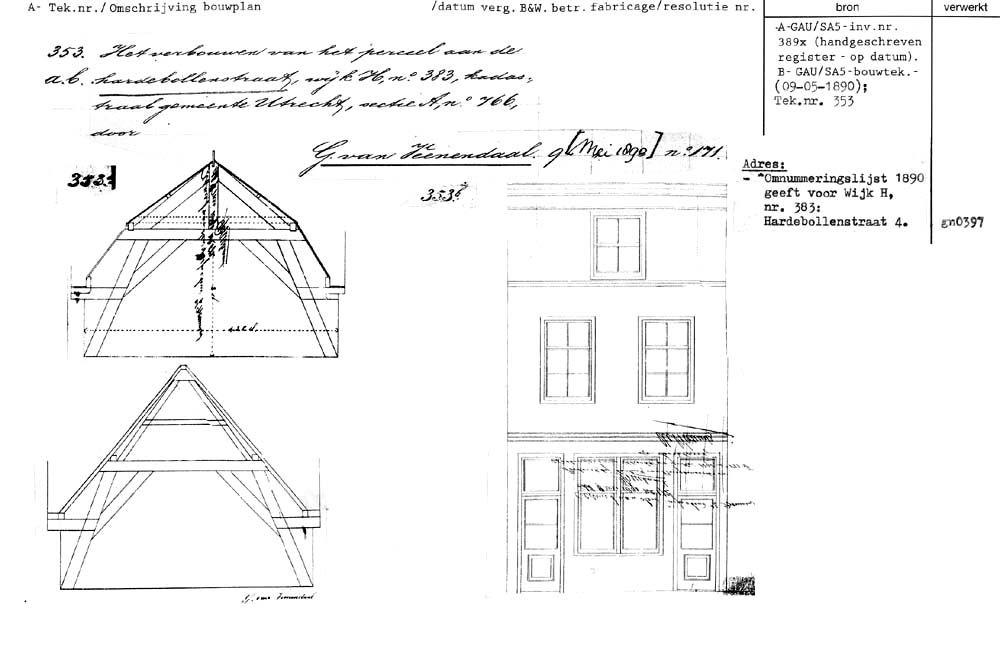 A- Tek.nr./Omschrijving bouwplan /datum verg. B&W. betr. fabricage/resolutie nr. bron verwerkt
353. Het verbouwen van het perceel aan de
a.b. hardebollenstraat, wijk H, no 383, kadas-
traal gemeente Utrecht, sectie A, no 766,
door
G. van Veenendaal. 9 [Mei 1890] no 171.
A-GAU/SA5-inv.nr.
389x (handgeschreven
register - op datum).
B- GAU/SA5-bouwtek.-
(09-05-1890);
Tek.nr. 353
Adres:
- "Omnummeringslijst 1890
geeft voor Wijk H,
nr. 383:
Hardebollenstraat 4.
gn0397
353a
353b
G. van Veenendaal